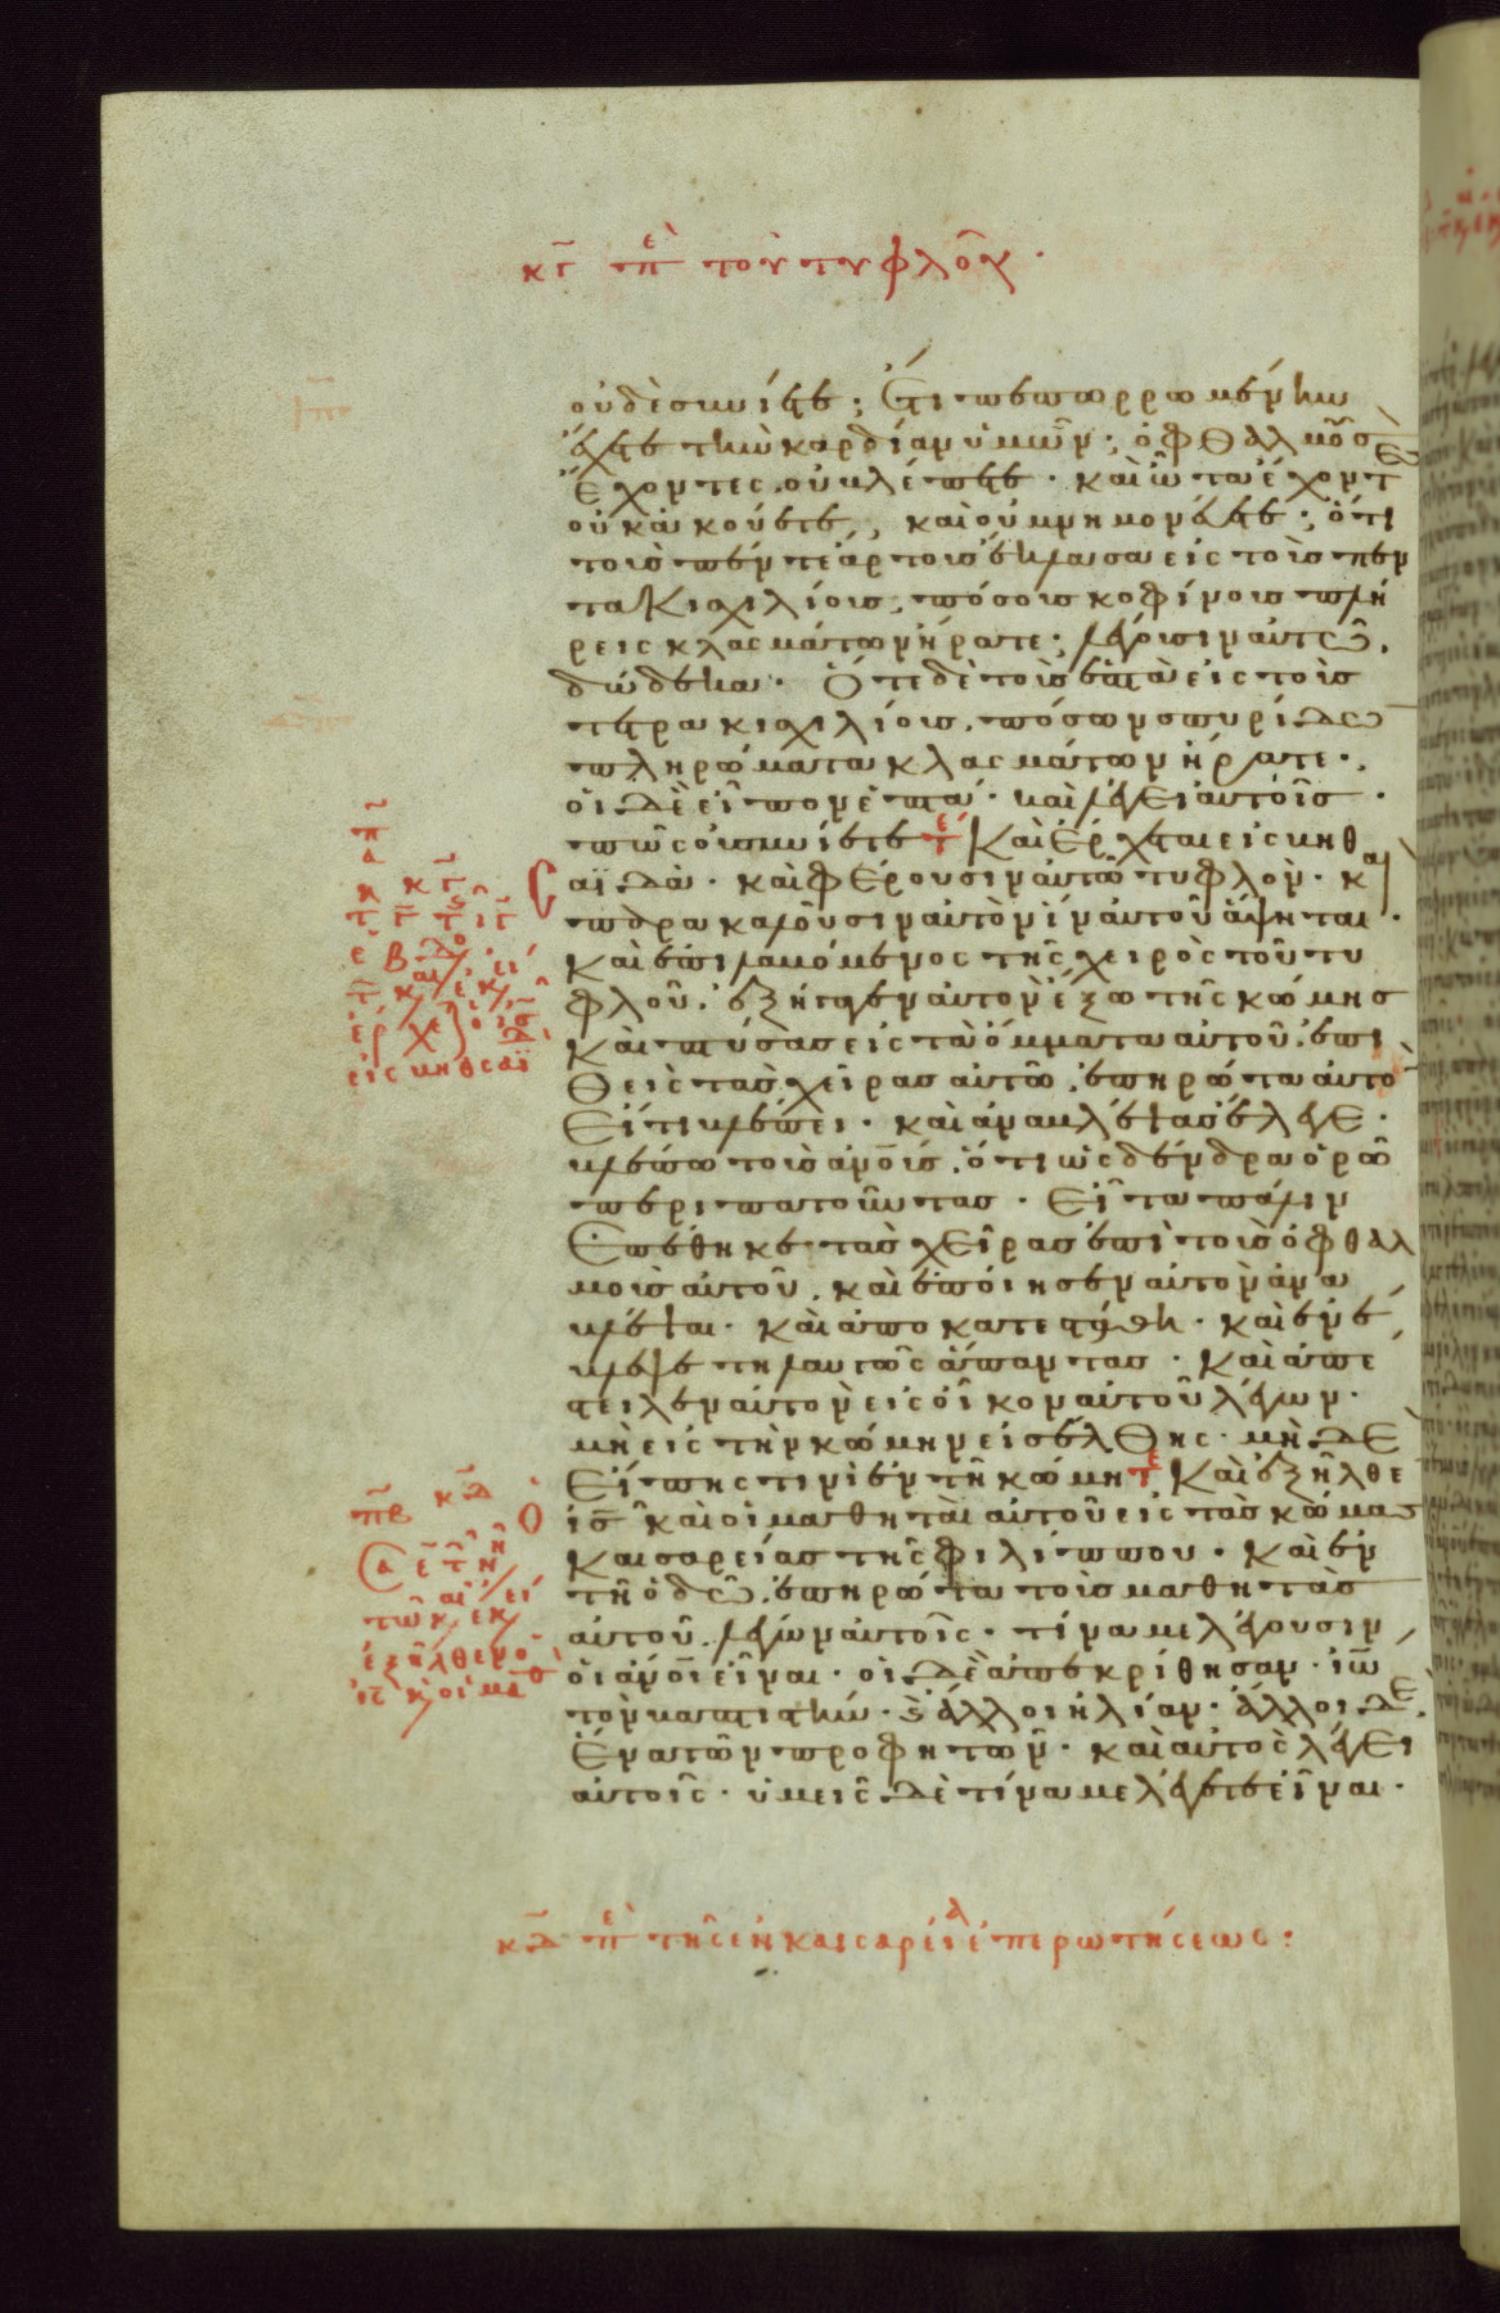 κγ πε του τυφλου·
οὐδὲ συνίετε; ἔτι πεπωρρωμένην
ἔχετε τὴν καρδίαν ὑμῶν; ὀφθαλμοὺς
ἔχοντες οὐ βλέπετε· καὶ ὦτα ἔχοντ
οὐκ ἀκούετε, καὶ οὐ μνημονεύετε; ὅτι
τοὺς πέντε ἄρτους ἔκλασα εἰς τοὺς πεν
τακισχιλίους, πόσους κοφίνους πλή
ρεις κλασμάτων ἤρατε; λέγουσιν αὐτῶ,
δώδεκα. Ὅτε δὲ τοὺς ἑπτὰ εἰς τοὺς
τετρακισχιλίους, πόσων σπυρίδων
πληρώματα κλασμάτων ἤρατε;
οἱ δὲ εἶπον ἑπτά· καὶ λέγει αὐτοῖς·
πῶς οὐ συνίετε τε Καὶ ἔρχεται εἰς βηθ
σαϊδά· καὶ φέρουσιν αὐτῶ τυφλόν· καὶ
παρακαλοῦσιν αὐτὸν ἵν αὐτοῦ ἅψηται·
καὶ ἐπιλαβόμενος τῆς χειρὸς τοῦ τυ
φλοῦ, ἐξήγαγεν αὐτὸν ἔξω τῆς κώμης
καὶ πτύσας εἰς τὰ ὄμματα αὐτοῦ, ἐπι
θεὶς τὰς χεῖρας αὐτῶ, ἐπηρώτα αὐτὸ
εἴ τι βλέπει· καὶ ἀναβλέψας ἔλεγε·
βλέπω τοὺς ἀνους, ὅτι ὡς δένδρα ὁρῶ
περιπατοῦντας· εἶτα πάλιν
ἐπέθηκε τὰς χεῖρας ἐπὶ τοὺς ὀφθαλ
μοὺς αὐτοῦ, καὶ ἐποίησεν αὐτὸν ἀνα
βλέψαι· καὶ ἀποκατεστάθη· καὶ ἐνέ
βλεψε τηλαυγῶς ἅπαντας· καὶ ἀπέ
στειλεν αὐτὸν εἰς οἶκον αὐτοῦ λέγων·
μὴ εἰς τὴν κώμην εἰσέλθης· μὴ δὲ
εἴπης τινὶ ἐν τῆ κώμη τε Καὶ ἐξῆλθε
ὁ ις καὶ οἱ μαθηταὶ αὐτοῦ εἰς τὰς κώμας
καισαρείας τῆς φιλίππου· καὶ ἐν
τῆ ὁδῶ, ἐπηρώτα τοὺς μαθητὰς
αὐτοῦ, λέγων αὐτοῖς· τίνα με λέγουσιν
οἱ ἀνοι εἶναι· οἱ δὲ ἀπεκρίθησαν· ἰω
τὸν βαπτιστήν· καὶ ἄλλοι ἠλίαν· ἄλλοι δὲ
ἕνα τῶν προφητῶν· καὶ αὐτὸς λέγει
αὐτοῖς· ὑμεῖς δὲ τίνα με λέγετε εἶναι·
πβ κδ
εἰς βηθσαϊ
κδ πε τῆς ἐν καισαρεία ἐπερωτήσεως: